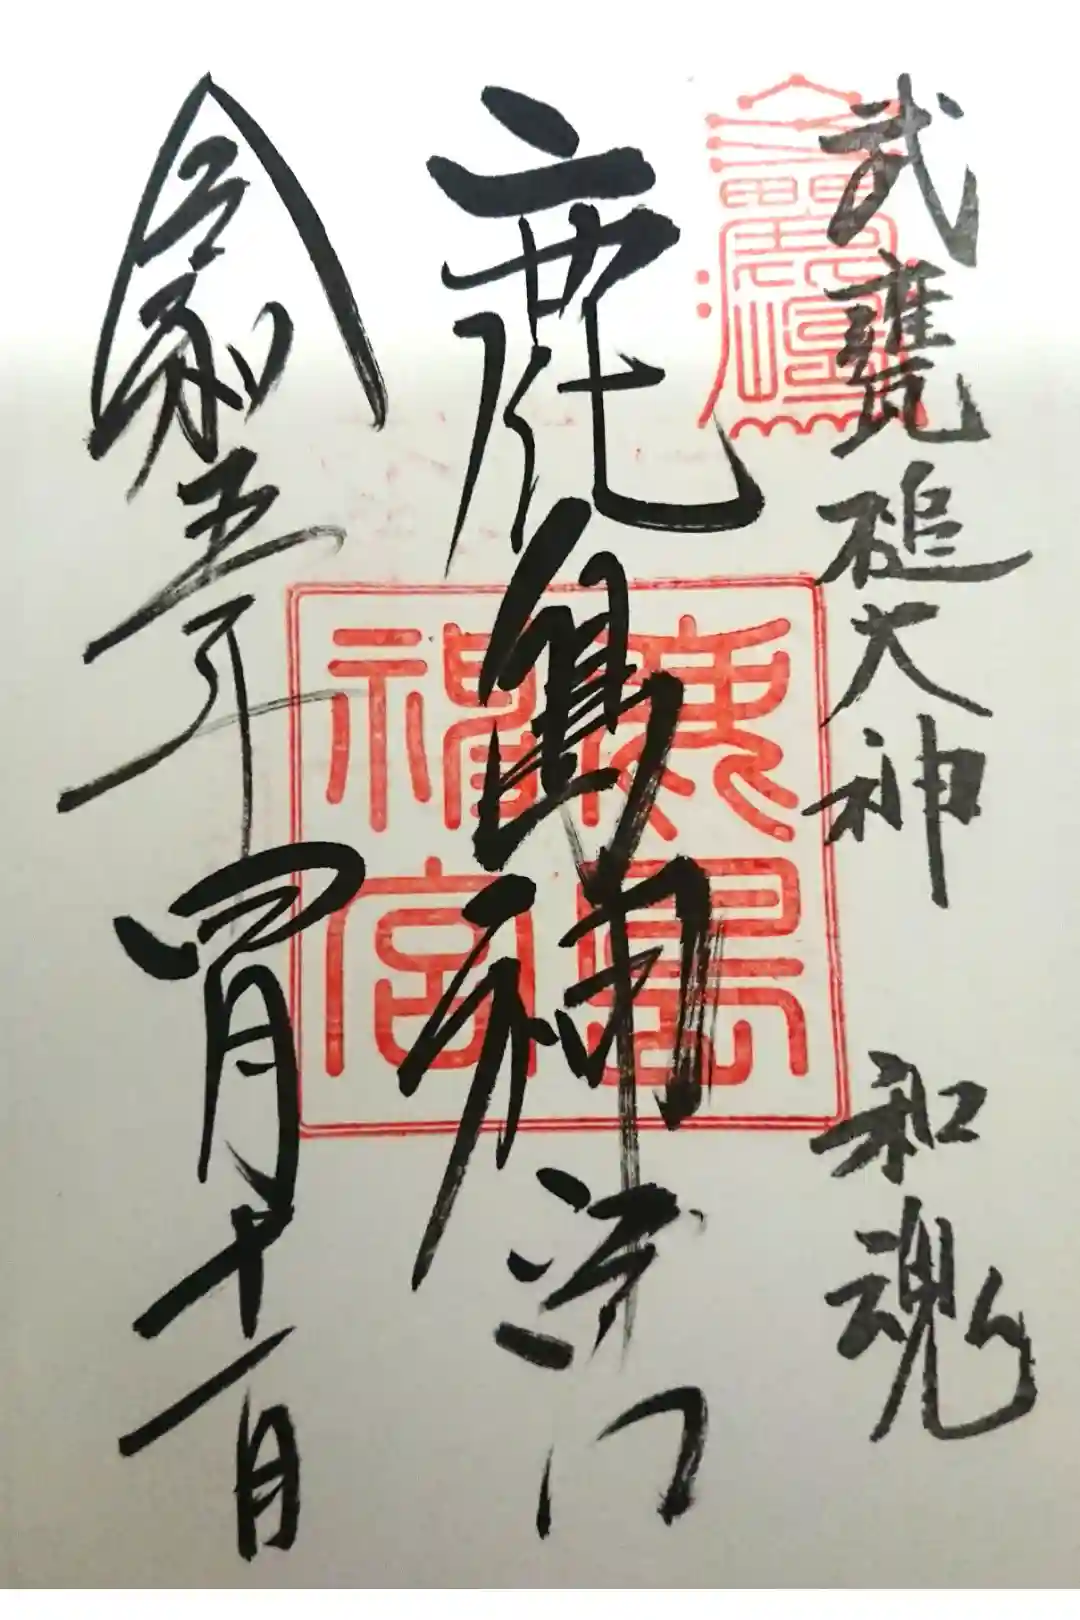 武甕槌大神 和魂
鹿島神宮
令和五年四月十一日
鹿島
神宮